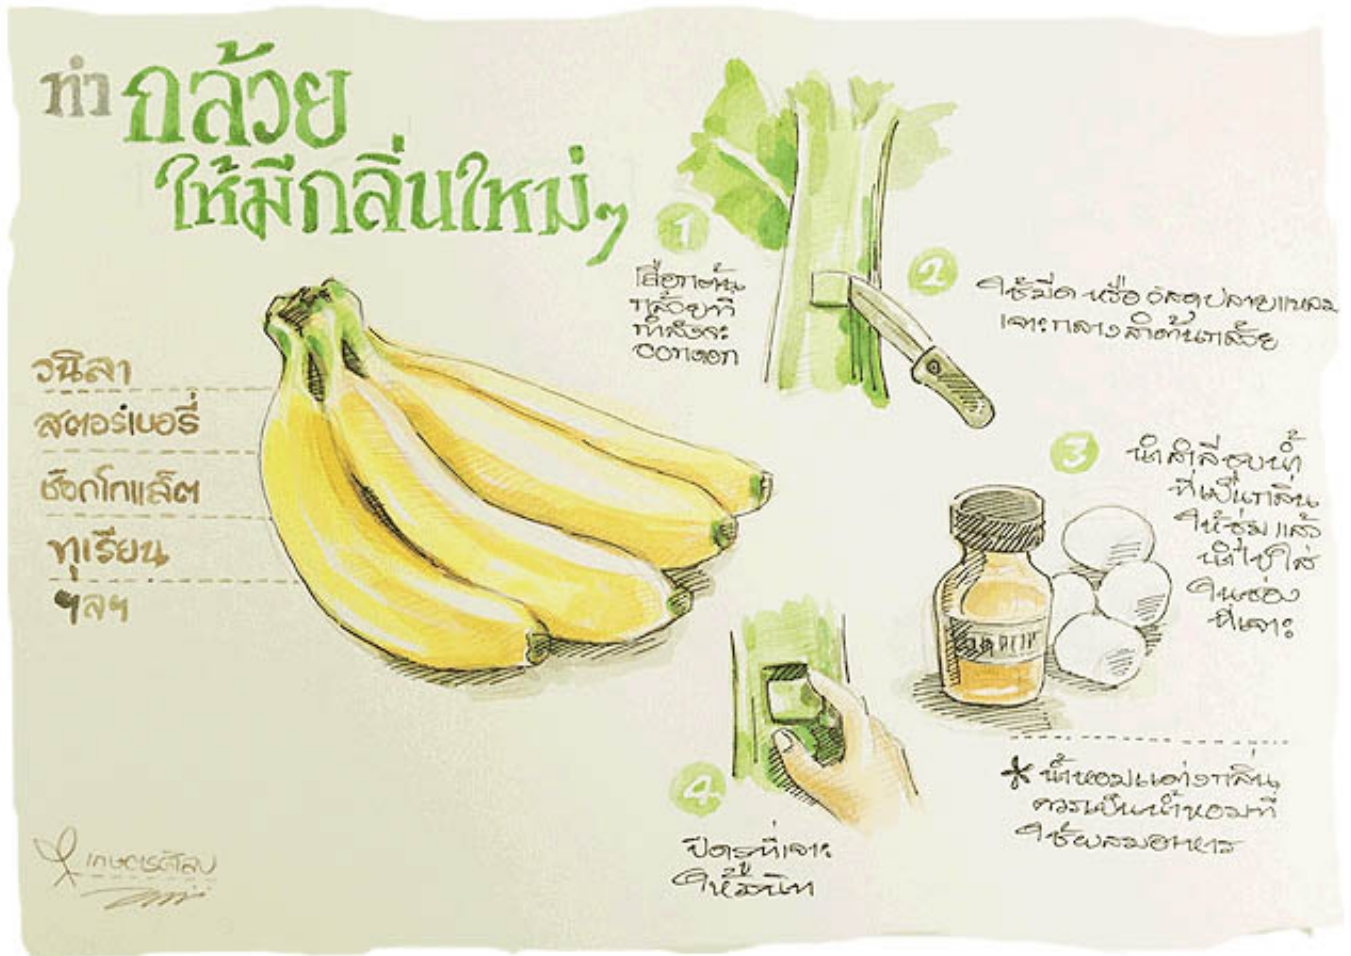 ทำ กล้วย
ให้มีกลิ่นใหม่ๆ
วนิลา
สตอร์เบอรี่
ช๊อกโกแล็ต
ทุเรียน
ฯลฯ
1
เลือกต้น
กล้วยที่
กำลังจะ
ออกดอก
2
ใช้มีด หรือ วัสดุปลายแหลม
เจาะกลางลำต้นกล้วย
3
นำสำลีชุบน้ำ
ที่เป็นกลิ่น
ให้ชุ่ม แล้ว
นำไปใส่
ในช่อง
ที่เจาะ
4
ปิดรูที่เจาะ
ให้สนิท
* น้ำหอมแต่งกลิ่น
ควรเป็นน้ำหอมที่
ใช้ผสมอาหาร
เกษตรศิลป์